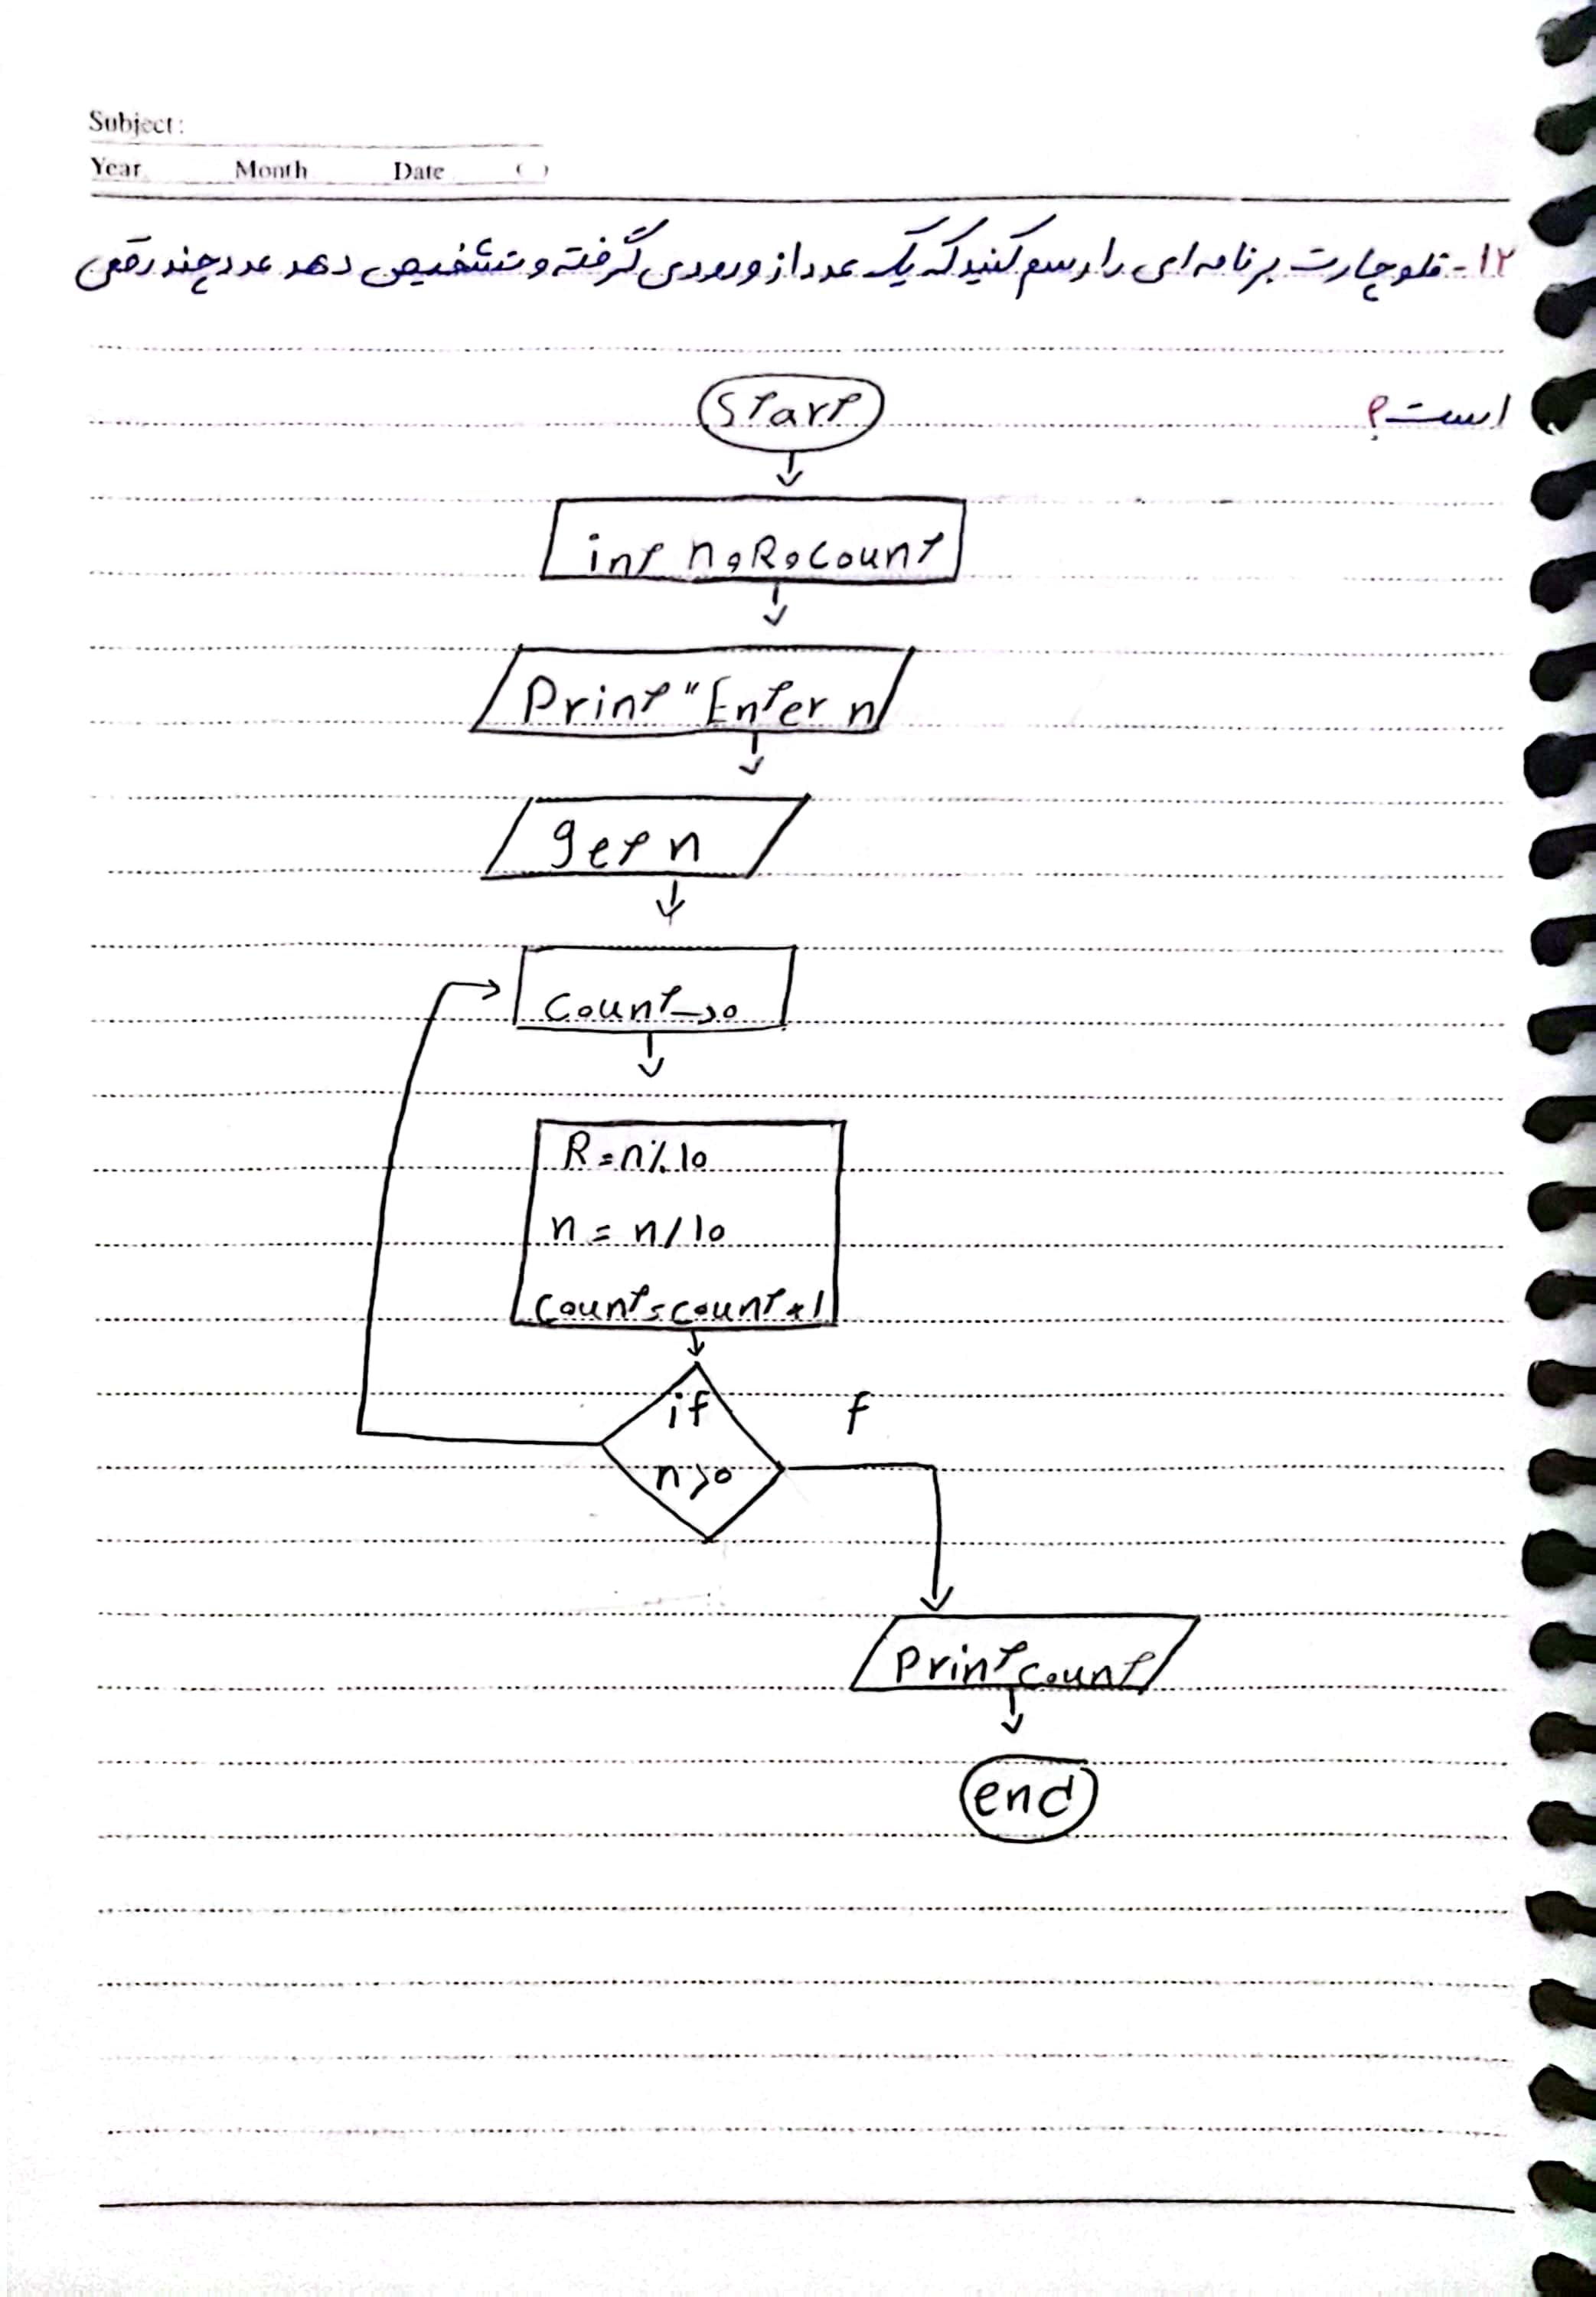 Subject:
Year Month Date ( )
۱۲- فلوچارت برنامه ای را رسم کنید که یک عدد از ورودی گرفته و تشخیص دهد عدد چند رقمی
است؟
Start
int n,R,Count
Print "Enter n
get n
Count→0
R=n%10
n = n/10
Count=count+1
if
n>0
f
Print count
end